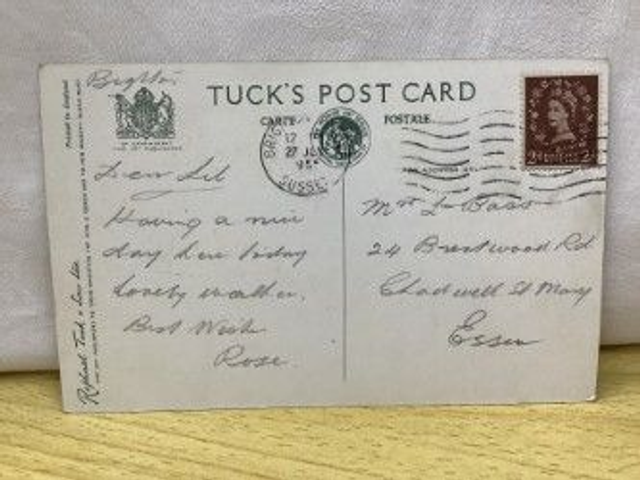 Brighton
TUCK'S POST CARD
CARTE POSTALE
BRIG
12
27 JU
195
SUSSEX
2d 2d
Dear Lil
Having a nice
day here today
Lovely weather.
Best Wish
Rose.
Mrs L Bass
24 Brentwood Rd
Chadwell St Mary
Essex
Printed in England
Raphael Tuck & Sons Ltd.